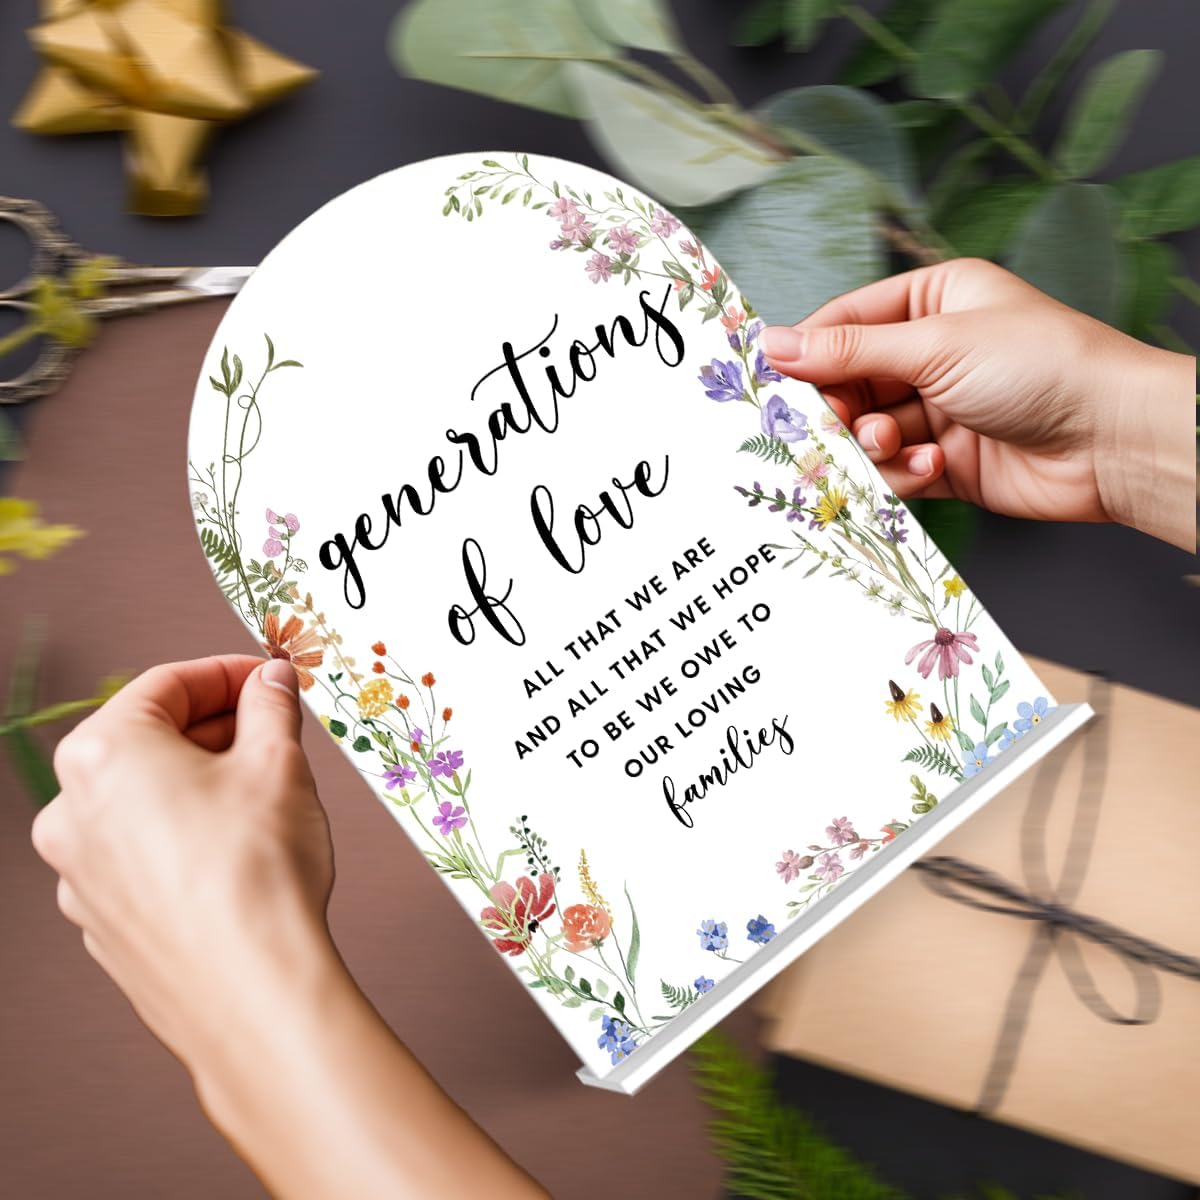 generations
of love
ALL THAT WE ARE
AND ALL THAT WE HOPE
TO BE WE OWE TO
OUR LOVING
families